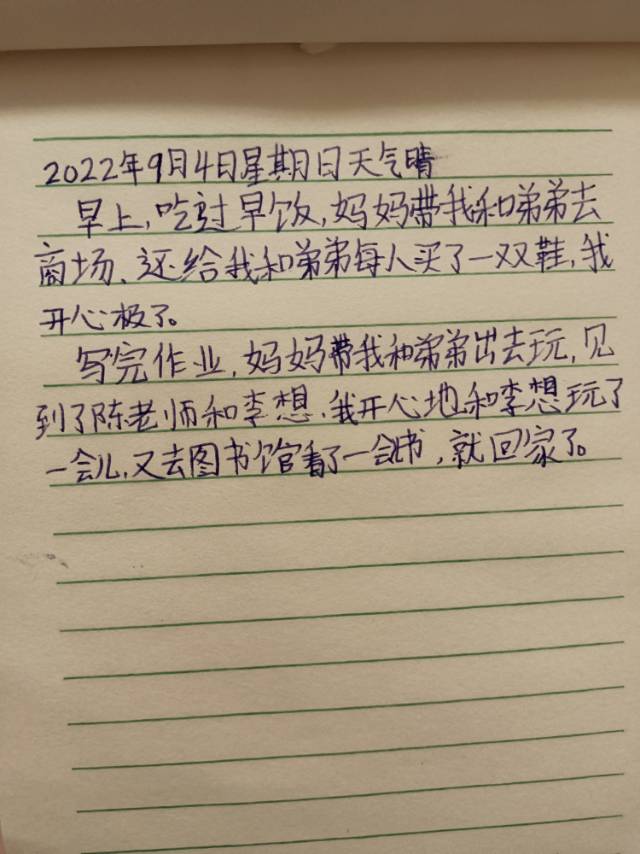 2022年9月4日星期日天气晴
早上,吃过早饭,妈妈带我和弟弟去
商场、还给我和弟弟每人买了一双鞋,我
开心极了。
写完作业,妈妈带我和弟弟出去玩,见
到了陈老师和李想、我开心地和李想玩了
一会儿,又去图书馆看了一会书,就回家了。